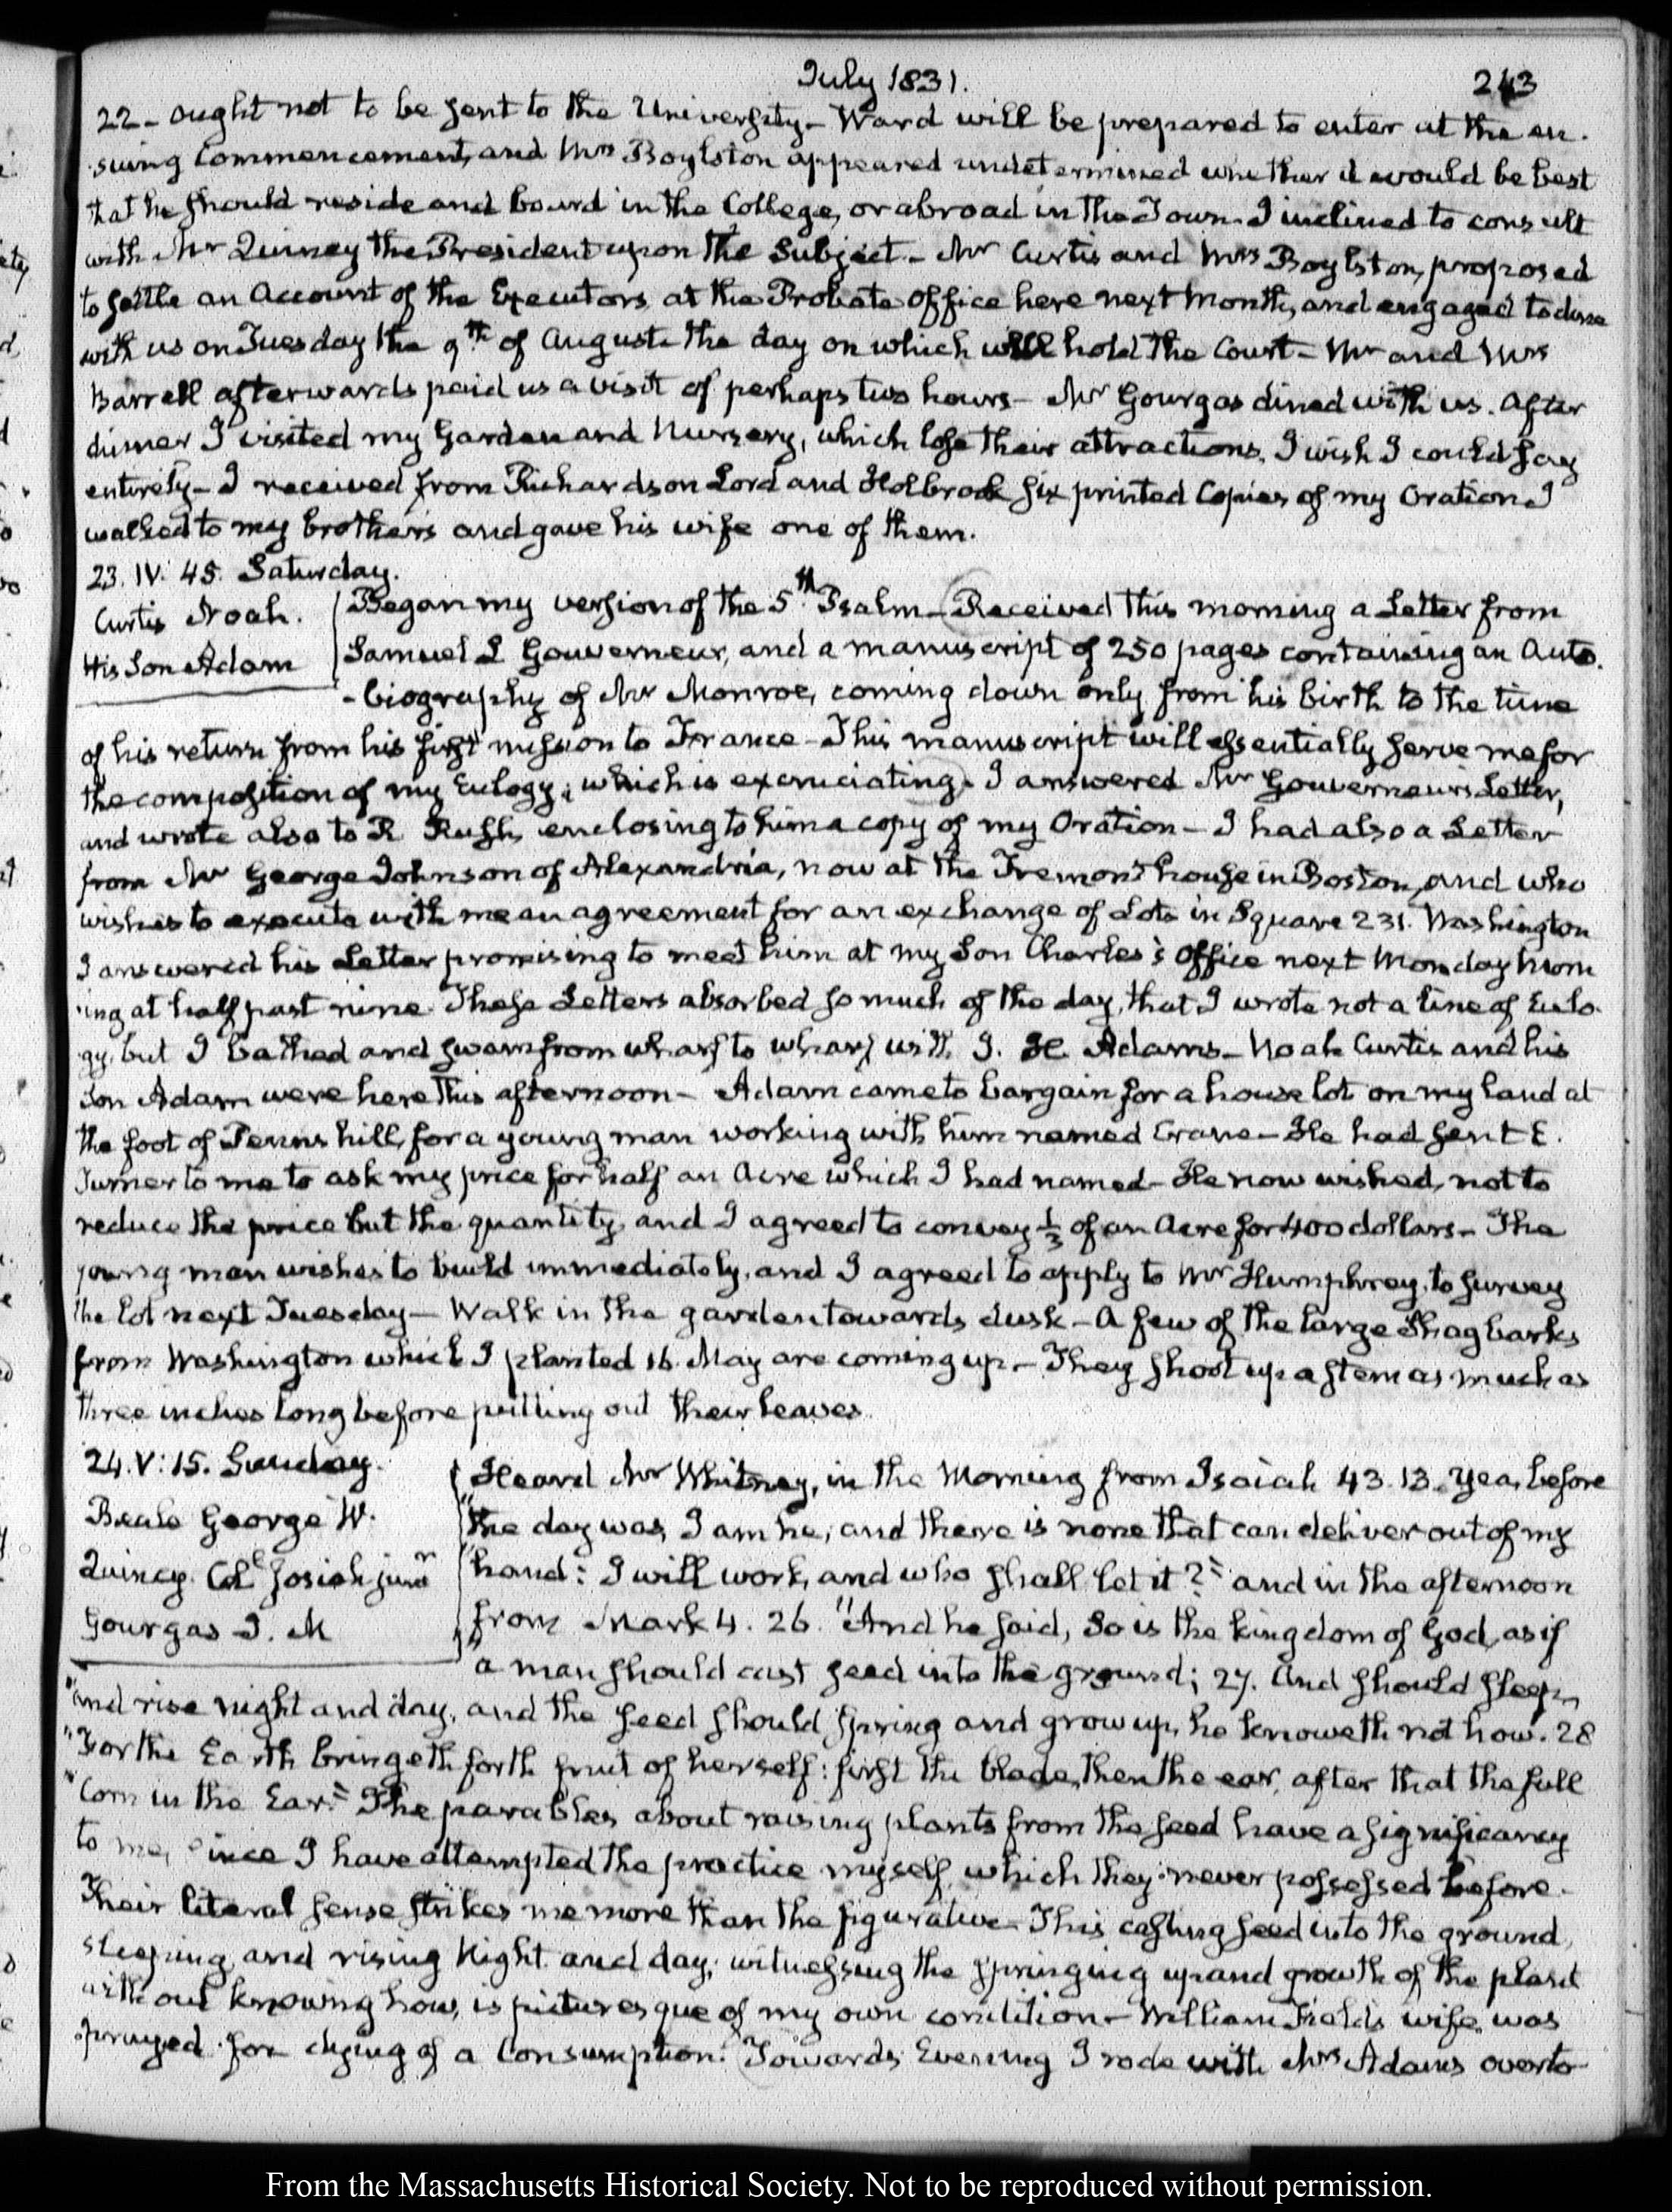 July 1831.
243
22 - ought not to be sent to the University - Ward will be prepared to enter at the en-
-suing Commencement, and Mrs Boylston appeared undetermined whether it would be best
that he should reside and board in the College, or abroad in the Town. I inclined to consult
with Mr Quincy the President upon the Subject - Mr Curtis and Mrs Boylston, proposed
to settle an Account of the Executors, at the Probate Office here next Month, and engaged to dine
with us on Tuesday the 9th of August the day on which will hold the Court - Mr and Mrs
Barrell afterwards paid us a visit of perhaps two hours - Mr Gourgas dined with us. After
dinner I visited my Garden and Nursery, which lose their attractions, I wish I could say
entirely - I received from Richardson Lord and Holbrook six printed Copies of my Oration I
walked to my brother's and gave his wife one of them.
23. IV: 45. Saturday.
Curtis Noah.
His Son Adam
Began my version of the 5th Psalm - Received this morning a Letter from
Samuel L Gouverneur, and a manuscript of 250 pages containing an Auto-
-biography of Mr Monroe, coming down only from his birth to the time
of his return from his first mission to France - This manuscript will essentially serve me for
the composition of my Eulogy, which is excruciating. I answered Mr Gouverneur's Letter,
and wrote also to R Rush, enclosing to him a copy of my Oration - I had also a Letter
from Mr George Johnson of Alexandria, now at the Tremont house in Boston, and who
wishes to execute with me an agreement for an exchange of Lots in Square 231. Washington
I answered his Letter promising to meet him at my Son Charles's Office next Monday Morn
-ing at half past nine. These Letters absorbed so much of the day, that I wrote not a line of Eulo-
-gy, but I bathed and swam from wharf to wharf with I. H. Adams - Noah Curtis and his
Son Adam were here this afternoon - Adam came to bargain for a house lot on my land at
the foot of Penns hill, for a young man working with him named Crane - He had sent E.
Turner to me to ask my price for half an Acre which I had named - He now wished, not to
reduce the price but the quantity, and I agreed to convey 1/3 of an Acre for 400 dollars - The
young man wishes to build immediately, and I agreed to apply to Mr Humphrey, to survey
the lot next Tuesday - Walk in the garden towards dusk - A few of the large Shagbarks
from Washington which I planted 16. May are coming up - They shoot up a stem as much as
three inches long before putting out their leaves.
24. V: 15. Sunday.
Beale George W.
Quincy. Col. Josiah junr
Gourgas J. M
Heard Mr Whitney, in the Morning from Isaiah 43. 13. "Yea, before
"the day was, I am he; and there is none that can deliver out of my
"hand: I will work, and who shall let it?" and in the afternoon
from Mark 4. 26. "And he said, So is the kingdom of God, as if
"a man should cast seed into the ground; 27. And should sleep,
"and rise night and day, and the seed should spring and grow up, he knoweth not how. 28
"For the Earth bringeth forth fruit of herself: first the blade, then the ear, after that the full
"Corn in the Ear." The parables about raising plants from the seed have a significancy
to me, since I have attempted the practice myself, which they never possessed before.
Their literal sense strikes me more than the figurative - This casting seed into the ground,
sleeping and rising Night and day, witnessing the springing up and growth of the plant
without knowing how, is picturesque of my own condition - William Field's wife, was
prayed for dying of a Consumption. Towards Evening I rode with Mrs Adams over to
From the Massachusetts Historical Society. Not to be reproduced without permission.